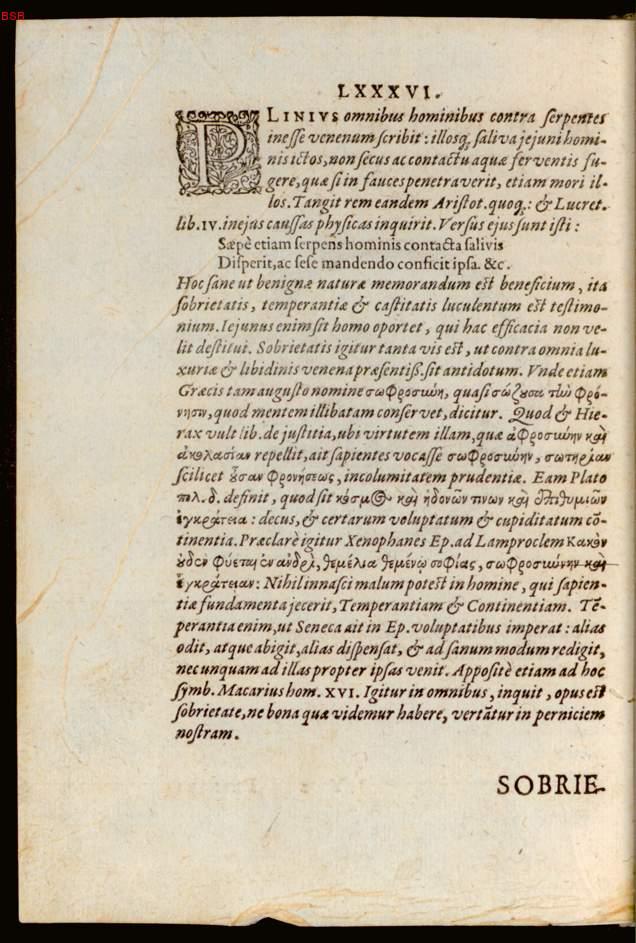 BSB
LXXXVI.
PLINIVS omnibus hominibus contra serpentes
inesse venenum scribit: illosq; saliva jejuni homi-
nis ictos, non secus ac contactu aquæ ferventis fu-
gere, quæ si in fauces penetraverit, etiam mori il-
los. Tangit rem eandem Aristot. quoq;: & Lucret.
lib. IV. in ejus caussas physicas inquirit. Versus ejus sunt isti:
Sæpè etiam serpens hominis contacta salivis
Disperit, ac sese mandendo conficit ipsa. &c.
Hoc sane ut benignæ naturæ memorandum est beneficium, ita
sobrietatis, temperantiæ & castitatis luculentum est testimo-
nium. Iejunus enim sit homo oportet, qui hac efficacia non ve-
lit destitui. Sobrietatis igitur tanta vis est, ut contra omnia lu-
xuriæ & libidinis venena præsentiß. sit antidotum. Vnde etiam
Græcis tam augusto nomine σωφροσύνη, quasi σώζουσα τὴν φρό-
νησιν, quod mentem illibatam conservet, dicitur. Quod & Hie-
rax vult lib. de justitia, ubi virtutem illam, quæ ἀφροσύνην καὶ
ἀκολασίαν repellit, ait sapientes vocasse σωφροσύνην, σωτηρίαν
scilicet οὖσαν φρονήσεως, incolumitatem prudentiæ. Eam Plato
πολ. δ. definit, quod sit κόσμος καὶ ἡδονῶν τινων καὶ ἐπιθυμιῶν
ἐγκράτεια: decus, & certarum voluptatum & cupiditatum cō-
tinentia. Præclarè igitur Xenophanes Ep. ad Lamproclem Κακὸν
οὐδὲν φύεται ἐν ἀνδρὶ, θεμέλια θεμένῳ σοφίας, σωφροσύνην καὶ
ἐγκράτειαν: Nihil innasci malum potest in homine, qui sapien-
tiæ fundamenta jecerit, Temperantiam & Continentiam. Tē-
perantia enim, ut Seneca ait in Ep. voluptatibus imperat: alias
odit, atque abigit, alias dispensat, & ad sanum modum redigit,
nec unquam ad illas propter ipsas venit. Appositè etiam ad hoc
symb. Macarius hom. XVI. Igitur in omnibus, inquit, opus est
sobrietate, ne bona quæ videmur habere, vertātur in perniciem
nostram.
SOBRIE-